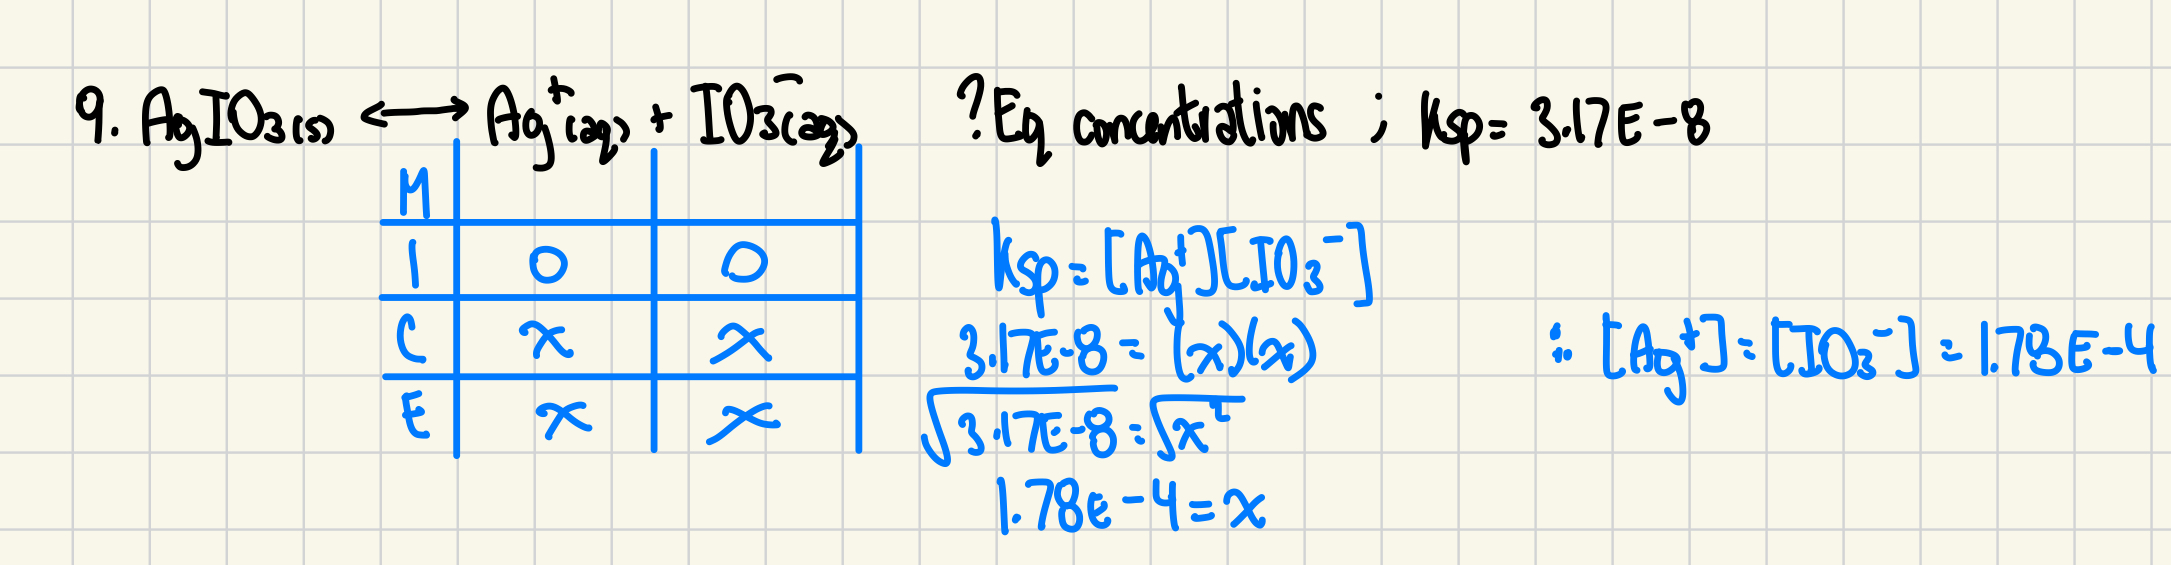 9. AgIO₃(s) ⟷ Ag⁺(aq) + IO₃⁻(aq) ? Eq concentrations ; Ksp = 3.17E-8
M
I 0 0
C x x
E x x
Ksp = [Ag⁺][IO₃⁻]
3.17E-8 = (x)(x)
√3.17E-8 = √x²
1.78E-4 = x
∴ [Ag⁺] = [IO₃⁻] = 1.78E-4